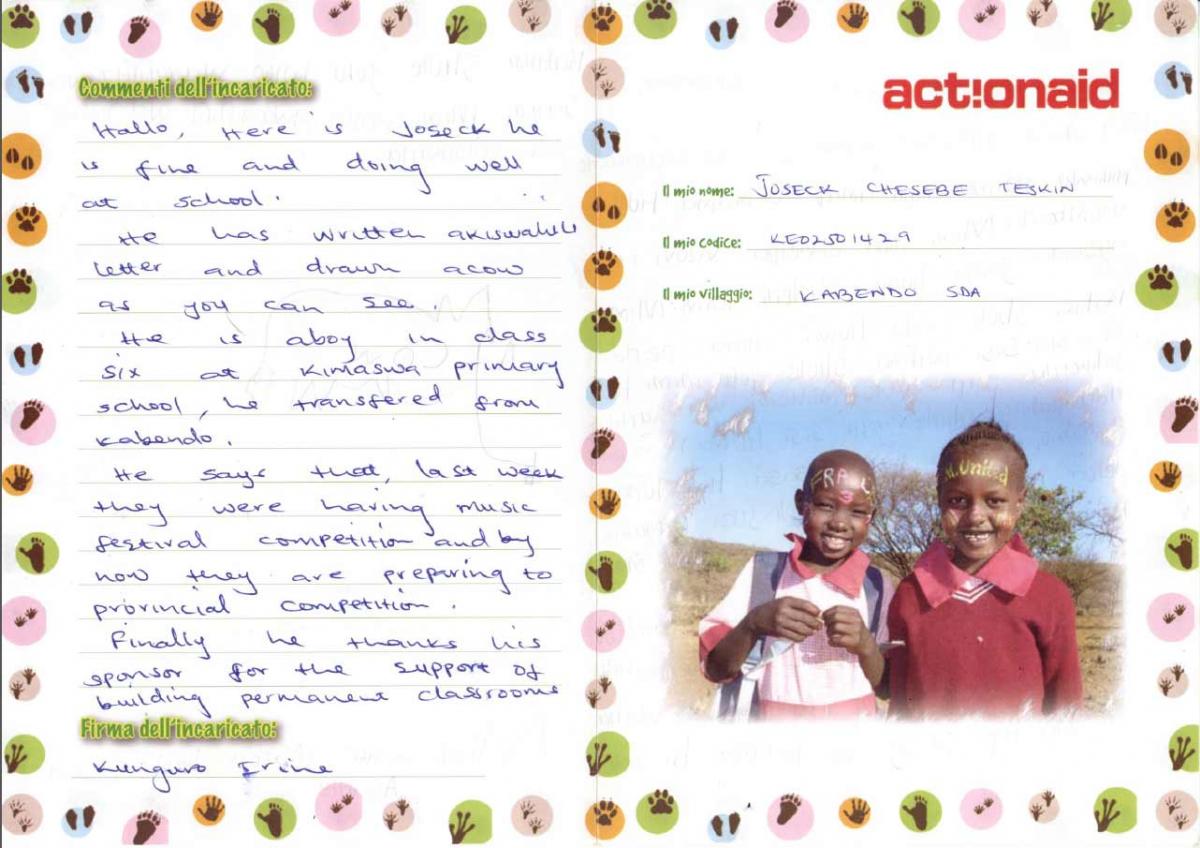 Commenti dell'incaricato:
Hallo, Here is Joseck he
is fine and doing well
at school.
He has written akiswahili
letter and drawn acow
as you can see.
He is aboy in class
six at Kimaswa primary
school, he transfered from
Kabendo.
He says that, last week
they were having music
festival competition and by
now they are preparing to
provincial competition.
Finally he thanks his
sponsor for the support of
building permanent classrooms
Firma dell'incaricato:
Kunguro Irine
act!onaid
Il mio nome: JOSECK CHESEBE TESKIN
Il mio codice: KE02501429
Il mio villaggio: KABENDO SDA
M.United